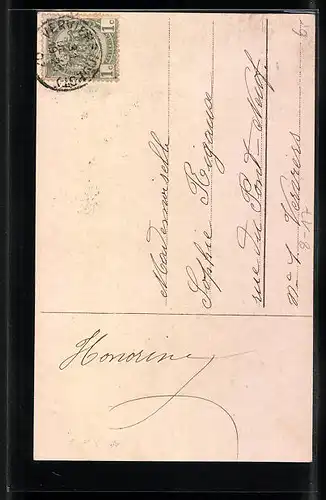 1c 1c
VERVIERS
Mademoiselle
Sophie Rigause
rue du Pont Neuf
No 1. Verviers
Honorine
8-17